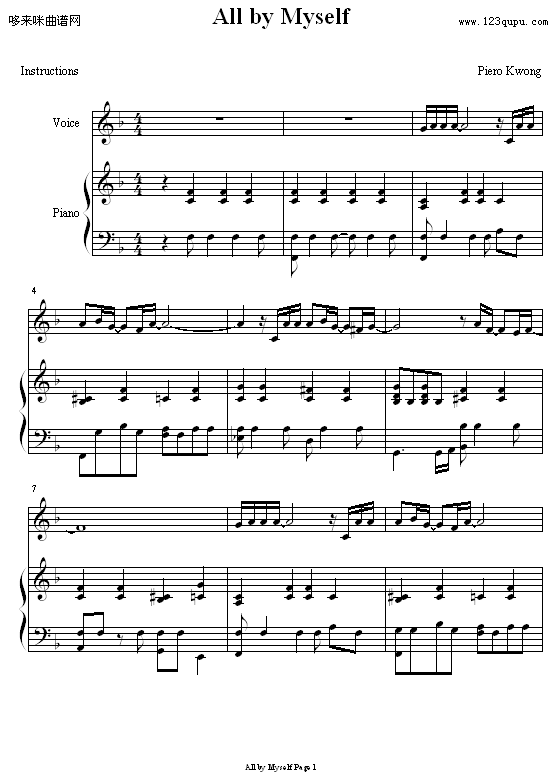 哆来咪曲谱网
All by Myself
www.123qupu.com
Instructions
Piero Kwong
Voice
4
4
Piano
4
4
4
4
4
7
All by Myself Page 1